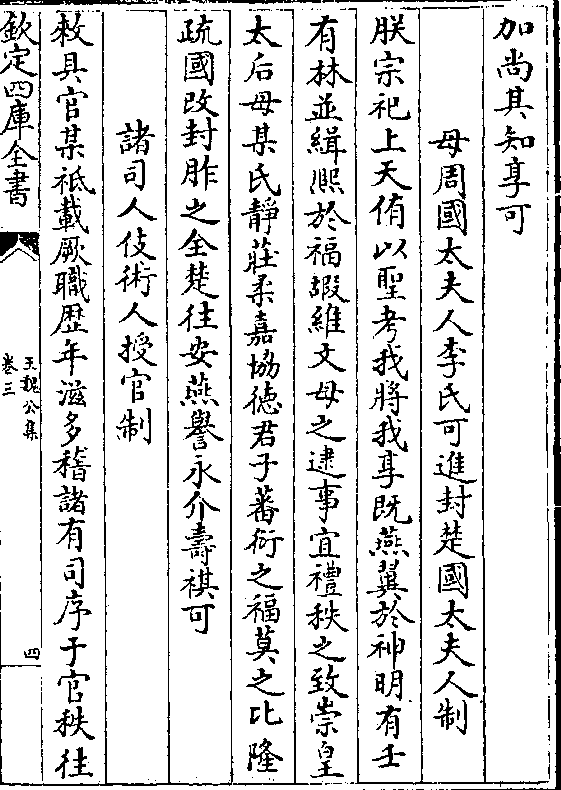 加尚其知享可
母周國太夫人李氏可進封楚國太夫人制
朕宗祀上天侑以聖考我將我享既燕翼於神明有壬
有林並緝熈於福嘏維文母之逮事宜禮秩之致崇皇
太后母某氏靜莊柔嘉協徳君子蕃衍之福莫之比隆
疏國改封胙之全楚往安燕譽永介壽祺可
諸司人伎術人授官制
敕具官某祗載厥職歴年滋多稽諸有司序于官秩往
欽定四庫全書
王魏公集
卷三
四